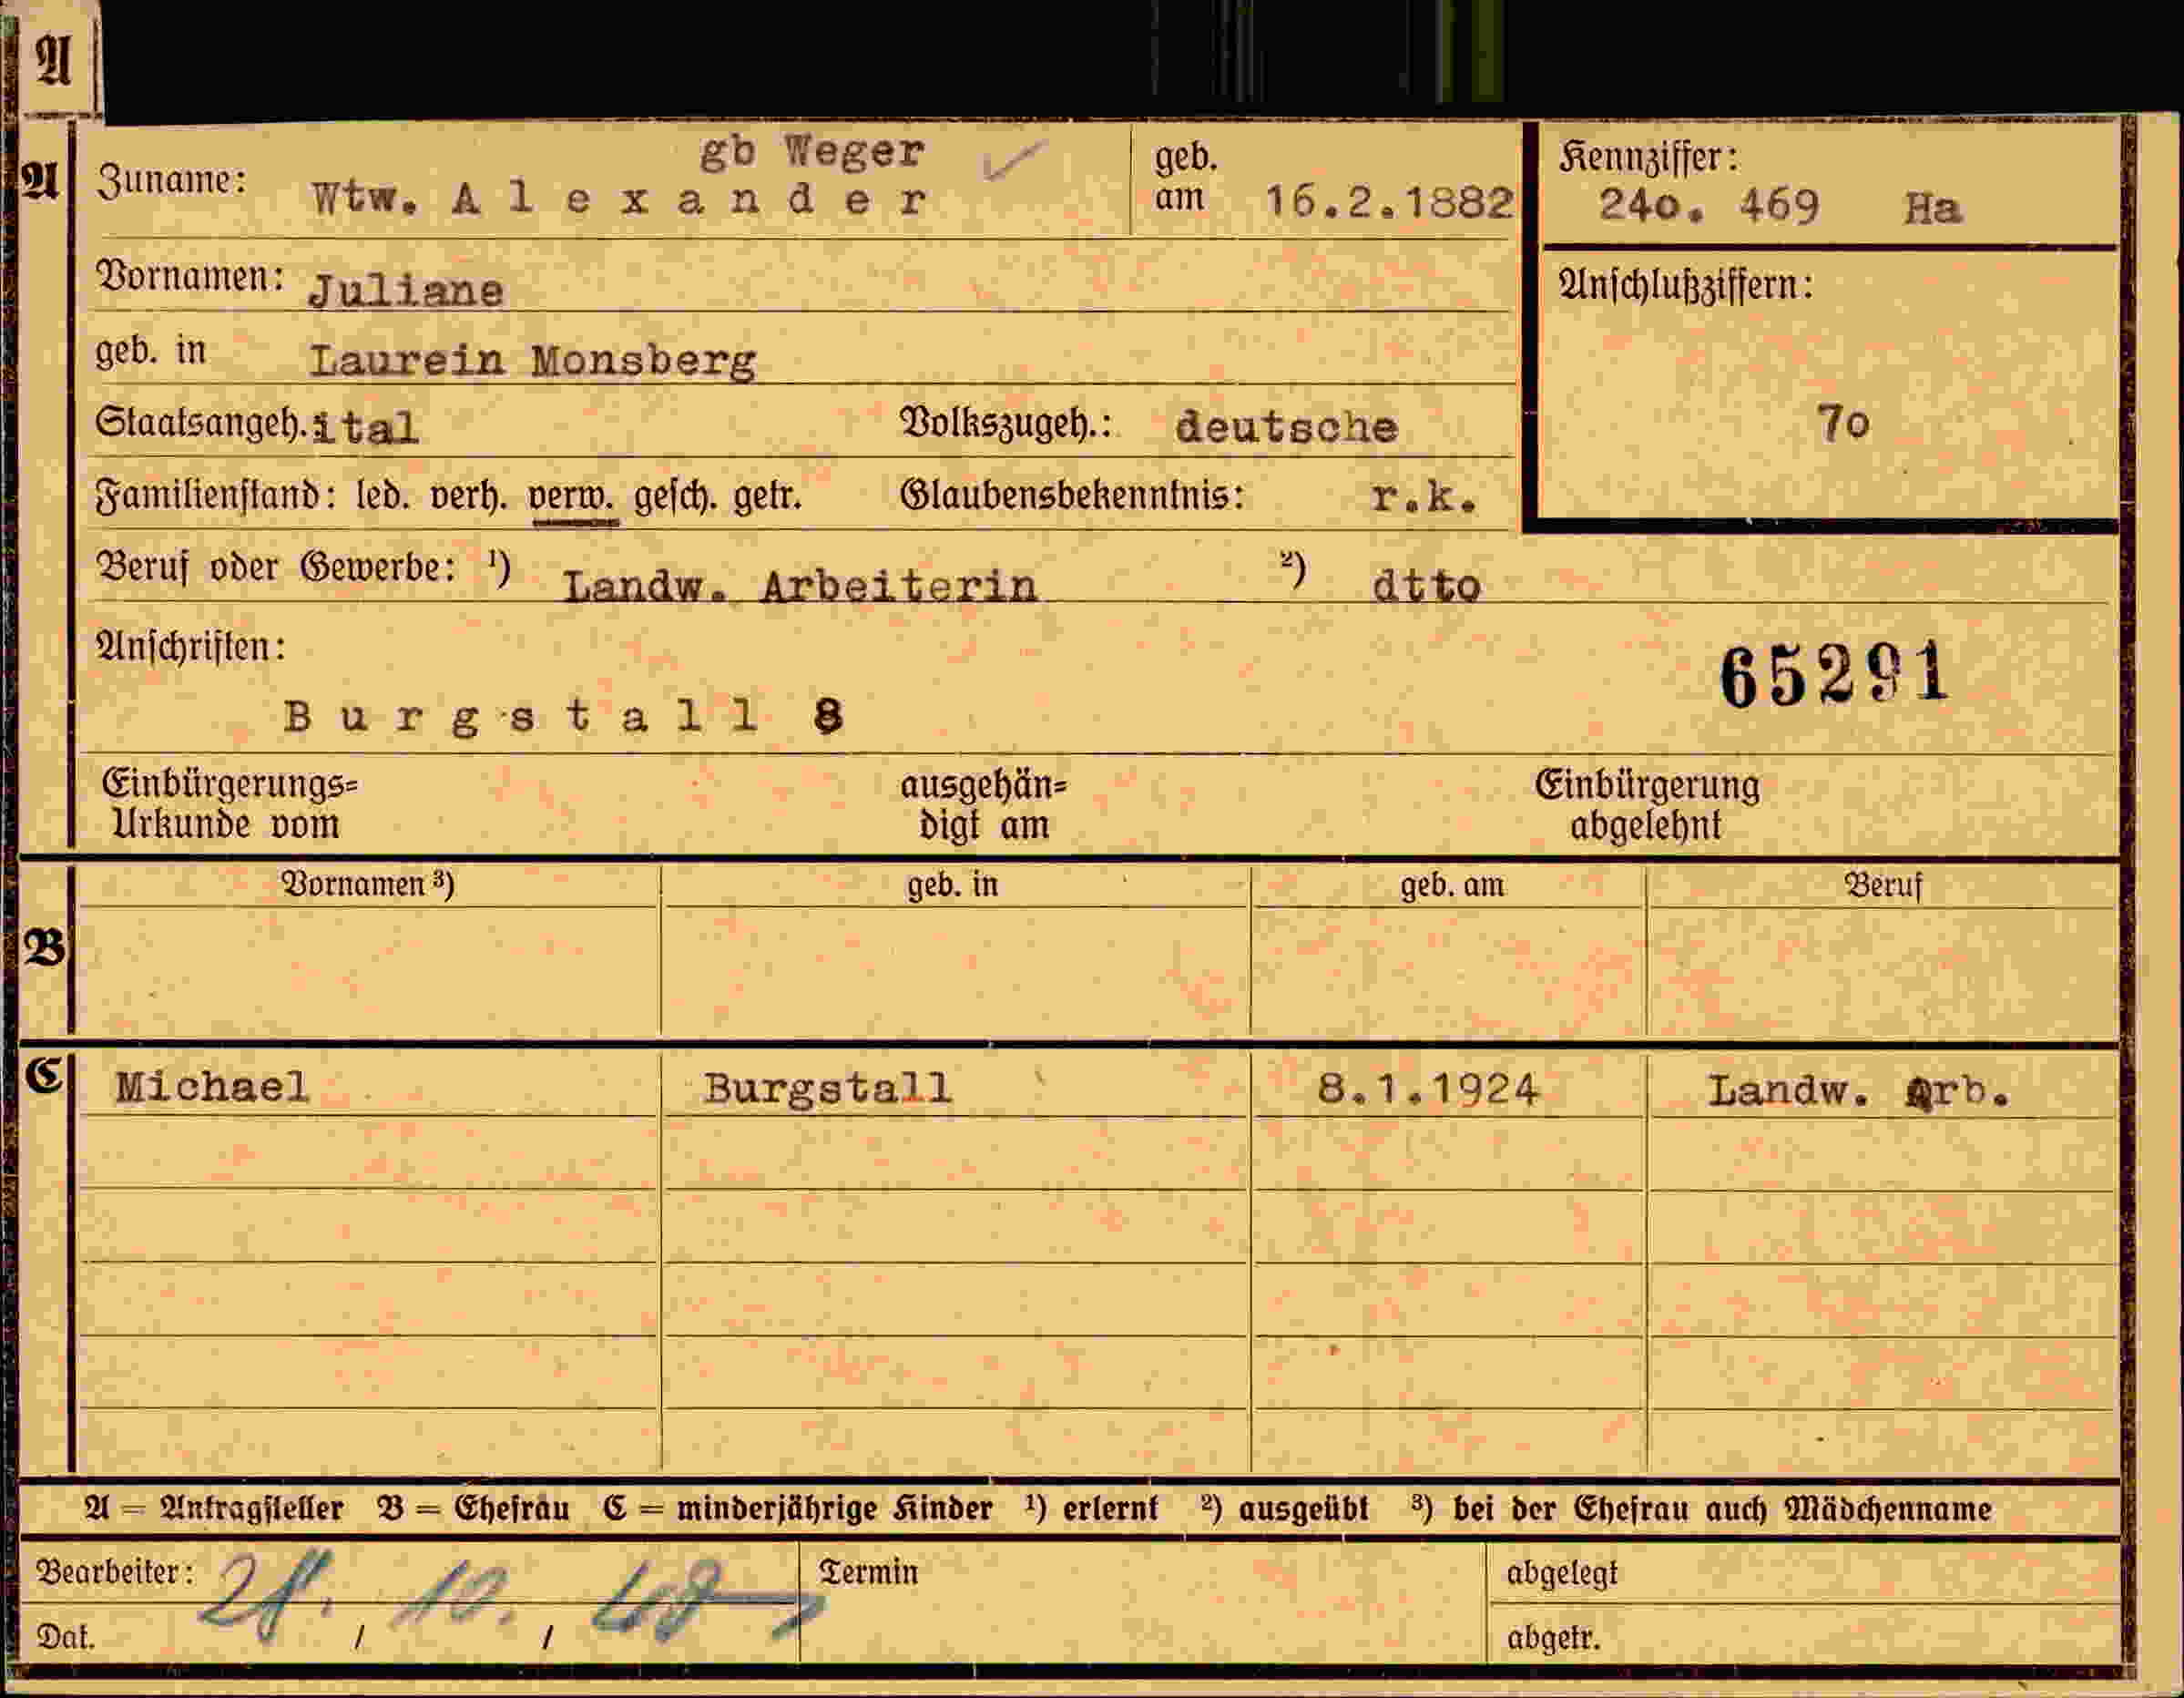 A
A
gb Weger
Zuname: Wtw. A l e x a n d e r
geb. am 16.2.1882
Kennziffer:
24o. 469 Ha
Vornamen: Juliane
Anschlußziffern:
7o
geb. in Laurein Monsberg
Staatsangeh. ital Volkszugeh.: deutsche
Familienstand: led. verh. verw. gesch. getr. Glaubensbekenntnis: r.k.
Beruf oder Gewerbe: ¹) Landw. Arbeiterin ²) dtto
Anschriften:
65291
B u r g s t a l l 8
Einbürgerungs= ausgehän= Einbürgerung
Urkunde vom digt am abgelehnt
B
Vornamen ³) geb. in geb. am Beruf
C
Michael Burgstall 8.1.1924 Landw. Arb.
A = Antragsteller B = Ehefrau C = minderjährige Kinder ¹) erlernt ²) ausgeübt ³) bei der Ehefrau auch Mädchenname
Bearbeiter: Termin abgelegt
10.
Dat. / / abgetr.